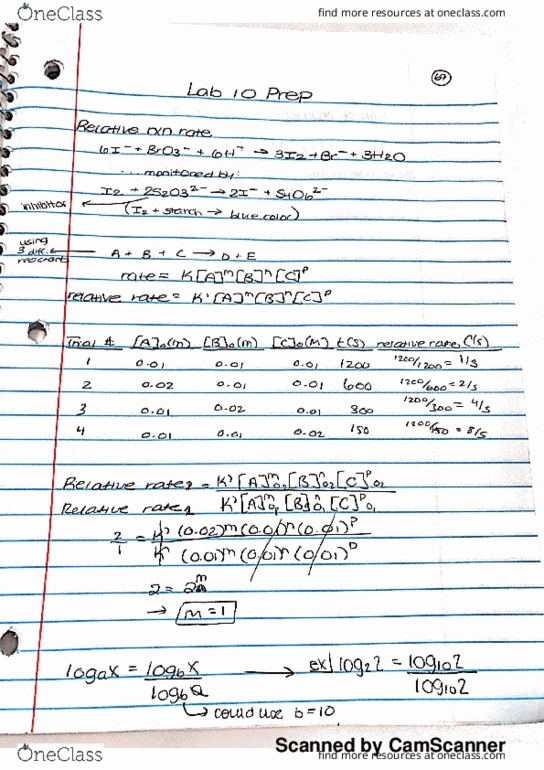 OneClass
find more resources at oneclass.com
67
Lab 10 Prep
Relative rxn rate
6I⁻ + BrO3⁻ + 6H⁺ → 3I2 + Br⁻ + 3H2O
... monitored by:
I2 + 2S2O3²⁻ → 2I⁻ + S4O6²⁻
inhibitor
(I2 + starch → blue color)
using
3 diff.
reactants
A + B + C → D + E
rate = K[A]ᵐ[B]ⁿ[C]ᵖ
relative rate = K'[A]ᵐ[B]ⁿ[C]ᵖ
Trial # [A]₀(M) [B]₀(M) [C]₀(M) t(s) relative rate, (/s)
1 0.01 0.01 0.01 1200 1200/1200 = 1/s
2 0.02 0.01 0.01 600 1200/600 = 2/s
3 0.01 0.02 0.01 300 1200/300 = 4/s
4 0.01 0.01 0.02 150 1200/150 = 8/s
Relative rate₂ = K'[A]ᵐ₀₂[B]ⁿ₀₂[C]ᵖ₀₂
Relative rate₁ K'[A]ᵐ₀₁[B]ⁿ₀₁[C]ᵖ₀₁
2/1 = K'(0.02)ᵐ(0.01)ⁿ(0.01)ᵖ
K'(0.01)ᵐ(0.01)ⁿ(0.01)ᵖ
2 = 2ᵐ
→ m = 1
logₐx = log_b x / log_b a → ex| log₂2 = log₁₀2 / log₁₀2
↳ could use b = 10
Scanned by CamScanner
OneClass
find more resources at oneclass.com